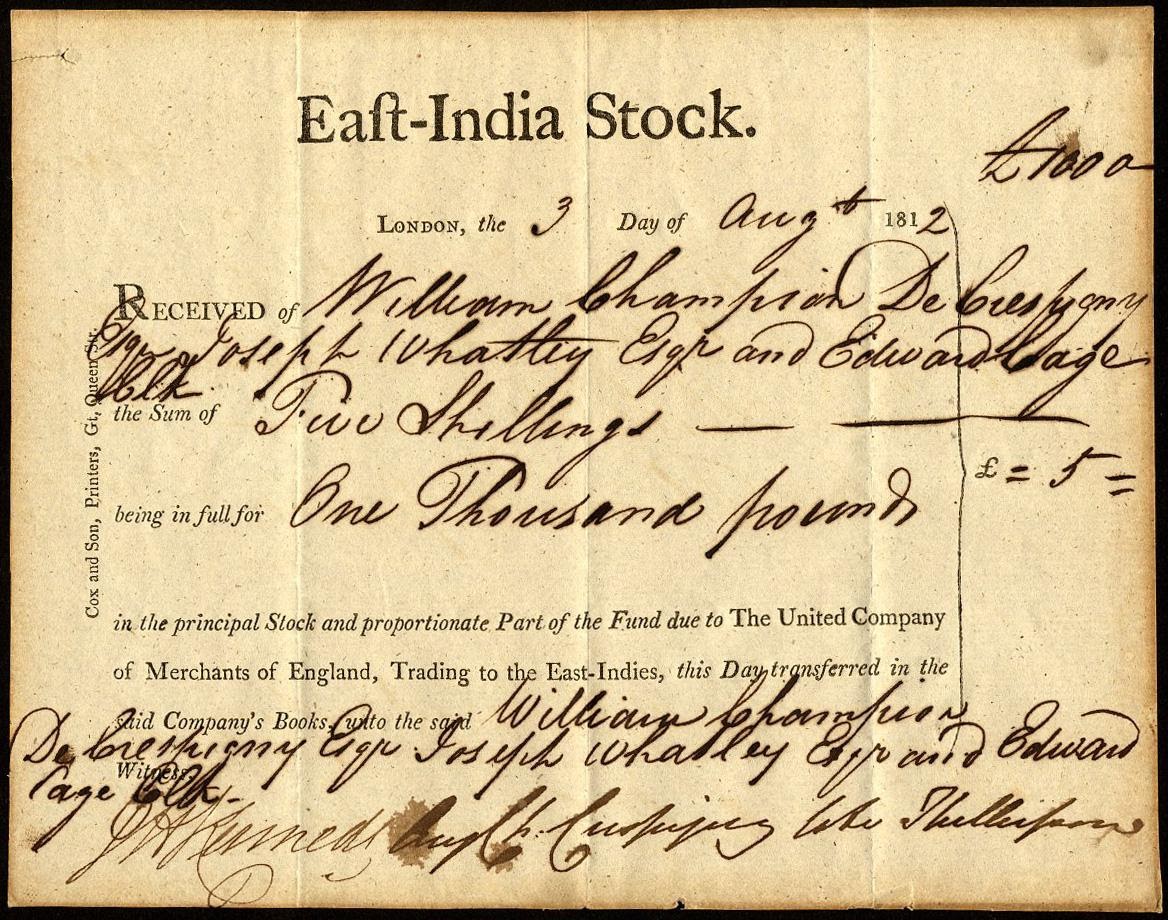 Eaſt-India Stock.
£1000
LONDON, the 3 Day of Augt 1812
RECEIVED of William Champion De Crespigny
Esqr Joseph Whatley Esqr and Edward Cage
Clk
the Sum of Five Shillings
£ = 5 =
being in full for One Thousand pounds
in the principal Stock and proportionate Part of the Fund due to The United Company
of Merchants of England, Trading to the East-Indies, this Day transferred in the
said Company's Books, unto the said William Champion
De Crespigny Esqr Joseph Whatley Esqr and Edward
Witness,
Cage Clk
Cox and Son, Printers, Gt, Queen Str.